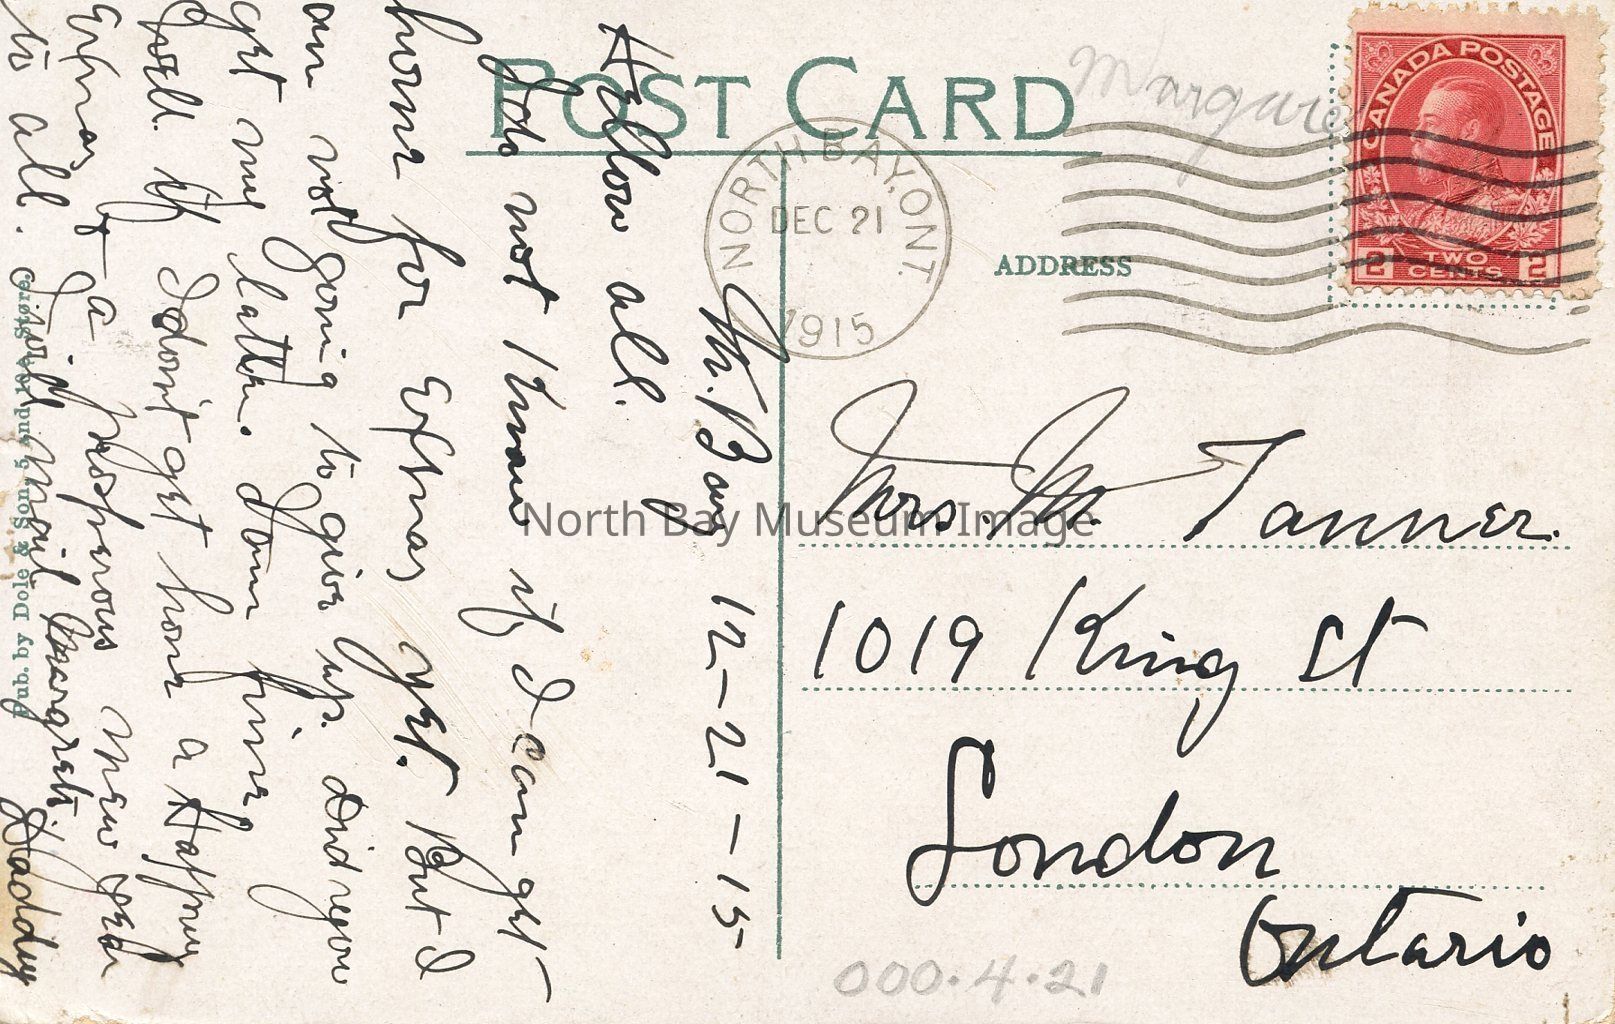 POST CARD
Margare
CANADA POSTAGE
2 TWO CENTS 2
NORTH BAY, ONT.
DEC 21
1915
ADDRESS
Mrs. M. Tanner.
1019 King St
London
Ontario
000.4.21
N. Bay 12-21-15-
Hellow all.
Do not know if I can get
home for Exmas yet. But I
am not going to give up. Did you
get my latter. I am fine,
Well if I don't get home a Happy
Exmas & a prosperous new year
to all. I will mail Margret. Daddy
Pub. by Dole & Son, 5 and 10c Store.
North Bay Museum Image